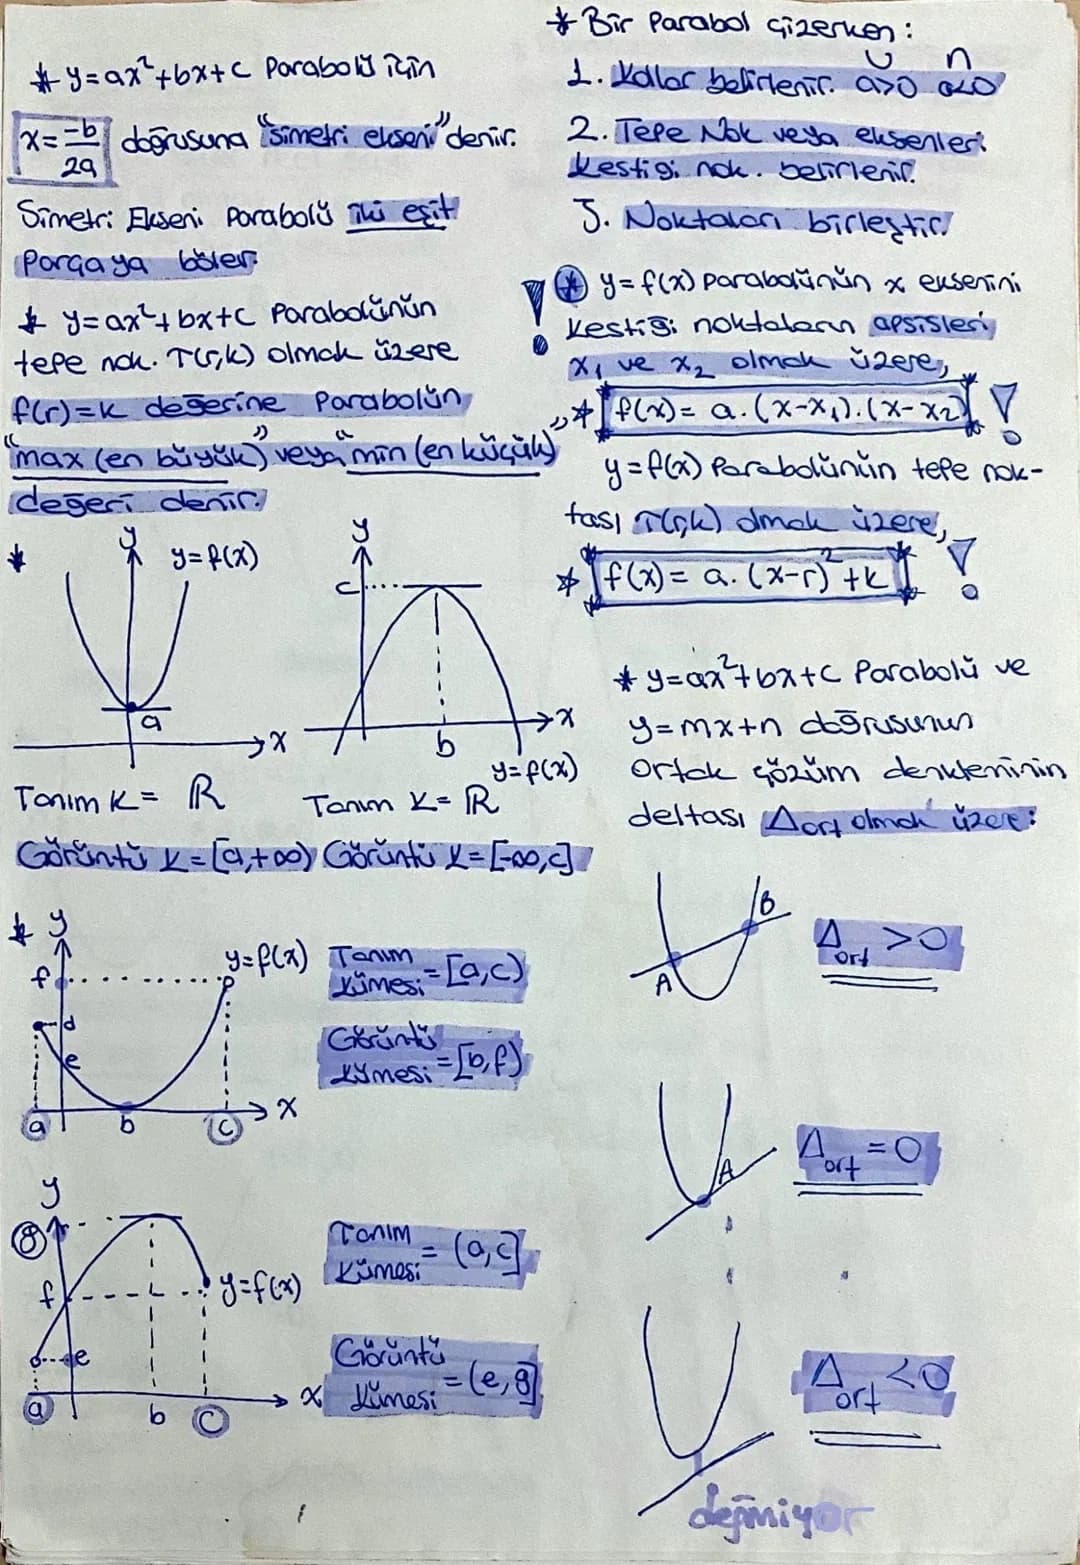 * y=ax²+bx+c Parabolü için
x=-b/2a doğrusuna "simetri ekseni" denir.
Simetri Ekseni Parabolü iki eşit
Parçaya böler.
* y=ax²+bx+c Parabolünün
tepe nok. T(r,k) olmak üzere
f(r)=k değerine Parabolün
"max (en büyük)" veya "min (en küçük)"
değeri denir.
*
y
y=f(x)
a
x
y
c
b
x
y=f(x)
Tanım K= R
Tanım K= R
Görüntü K=[a,+∞)
Görüntü K=[-∞,c]
*
y
f
d
e
a
b
c
x
y=f(x)
Tanım
Kümesi =[a,c)
Görüntü
Kümesi =[b,f)
y
g
f
e
a
b
c
x
y=f(x)
Tanım
Kümesi = (a,c]
Görüntü
Kümesi =(e,g]
* Bir Parabol çizerken:
∪ ∩
1. Kollar belirlenir. a>0 a<0
2. Tepe Nok veya eksenleri
kestiği nok. belirlenir.
3. Noktaları birleştir.
! * y=f(x) Parabolünün x eksenini
kestiği noktaların apsisleri
x₁ ve x₂ olmak üzere,
* f(x)= a.(x-x₁).(x-x₂) !
y=f(x) Parabolünün tepe nok-
tası T(r,k) olmak üzere,
* f(x)= a.(x-r)²+k !
* y=ax²+bx+c Parabolü ve
y=mx+n doğrusunun
Ortak çözüm denkleminin
deltası Δort olmak üzere:
A
B
Δort >0
A
Δort =0
Δort <0
değmiyor